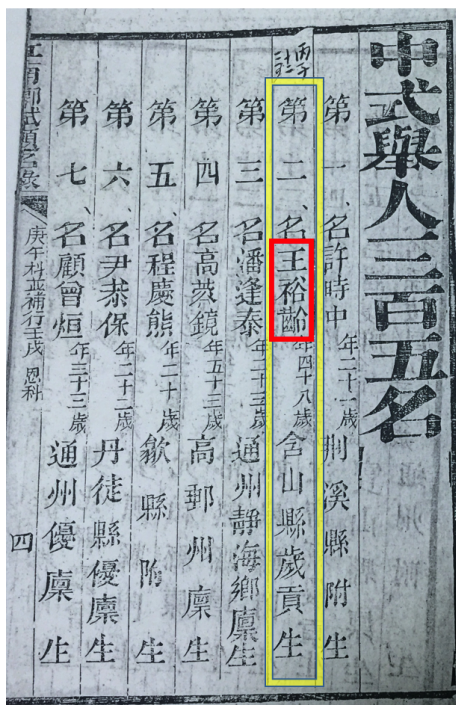 中式舉人三百五名
第一名許時中年二十一歲荆溪縣附生
丙子
第二名王裕齡年四十八歲含山縣歲貢生
第三名潘逢泰年二十三歲通州靜海鄉廩生
第四名高蓺鏡年五十三歲高郵州廩生
第五名程慶熊年二十歲歙縣附生
第六名尹恭保年二十二歲丹徒縣優廩生
第七名顧曾烜年三十三歲通州優廩生
江南鄉試題名錄
庚午科並補行壬戌恩科
四